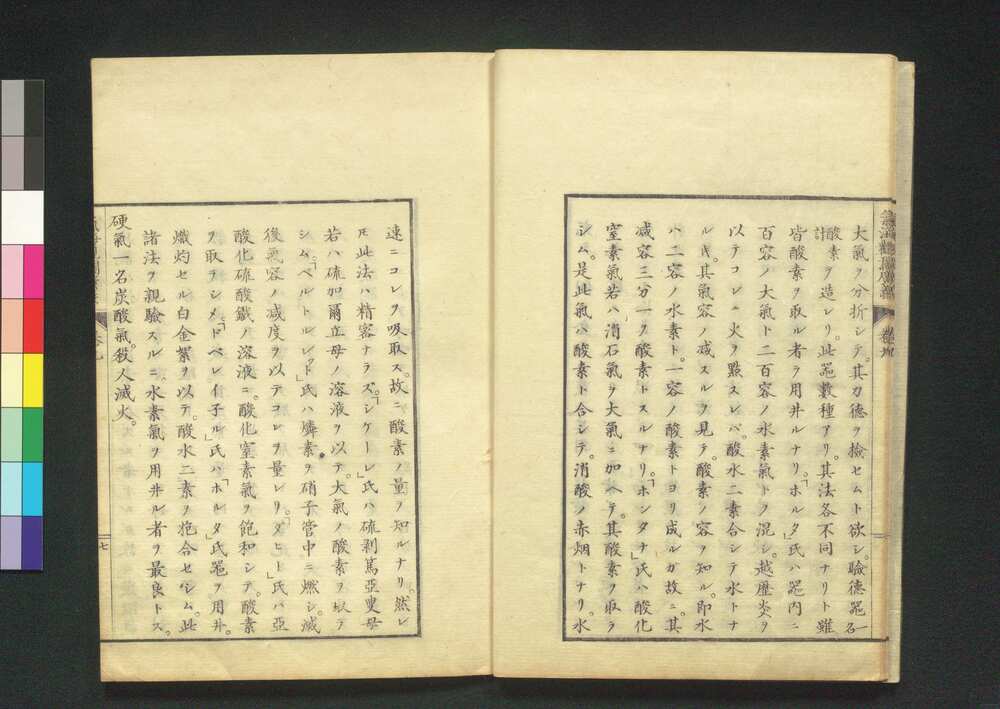 氣海觀瀾廣義 卷九
大氣ヲ分析シテ。其力德ヲ撿セムト欲シ。驗德噐一名
酸素計ヲ造レリ。此噐數種アリ。其法各不同ナリト雖
皆酸素ヲ取ル者ヲ用井ルナリ。「ホルタ」氏ハ噐内ニ
百容ノ大氣ト二百容ノ水素氣トヲ混シ。越歷炎ヲ
以テコレニ火ヲ點スレバ。酸水二素合シテ水トナ
ル。其氣容ノ减スルヲ見テ。酸素ノ容ヲ知ル。即水
ハ二容ノ水素ト。一容ノ酸素トヨリ成ルガ故ニ。其
减容三分一ヲ酸素トスルナリ。「ホンタナ」氏ハ酸化
窒素氣若ハ消石氣ヲ大氣ニ加ヘテ。其酸素ヲ取ラ
シム。是此氣ハ酸素ト合シテ。消酸ノ赤烟トナリ。水
速ニコレヲ吸取ス。故ニ酸素ノ量ヲ知ルナリ。然レ
𪜈此法ハ精密ナラズ。「シケーレ」氏ハ硫剥篤亞叟母
若ハ硫加爾立母ノ溶液ヲ以テ。大氣ノ酸素ヲ取ラ
シム。「ベルトルレット」氏ハ燐素ヲ硝子管中ニ燃シ。滅
後氣容ノ减度ヲ以テコレヲ量レリ。「タヒト」氏ハ亞
酸化硫酸鐵ノ溶液ニ。酸化窒素氣ヲ飽和シテ。酸素
ヲ取ラシメ。「ドベレイ子ル」氏ハ「ホルタ」氏噐ヲ用井。
熾灼セル白金絮ヲ以テ。酸水二素ヲ抱合セシム。此
諸法ヲ親驗スルニ。水素氣ヲ用井ル者ヲ最良トス。
硬氣一名炭酸氣。殺人滅火。
卷九
七